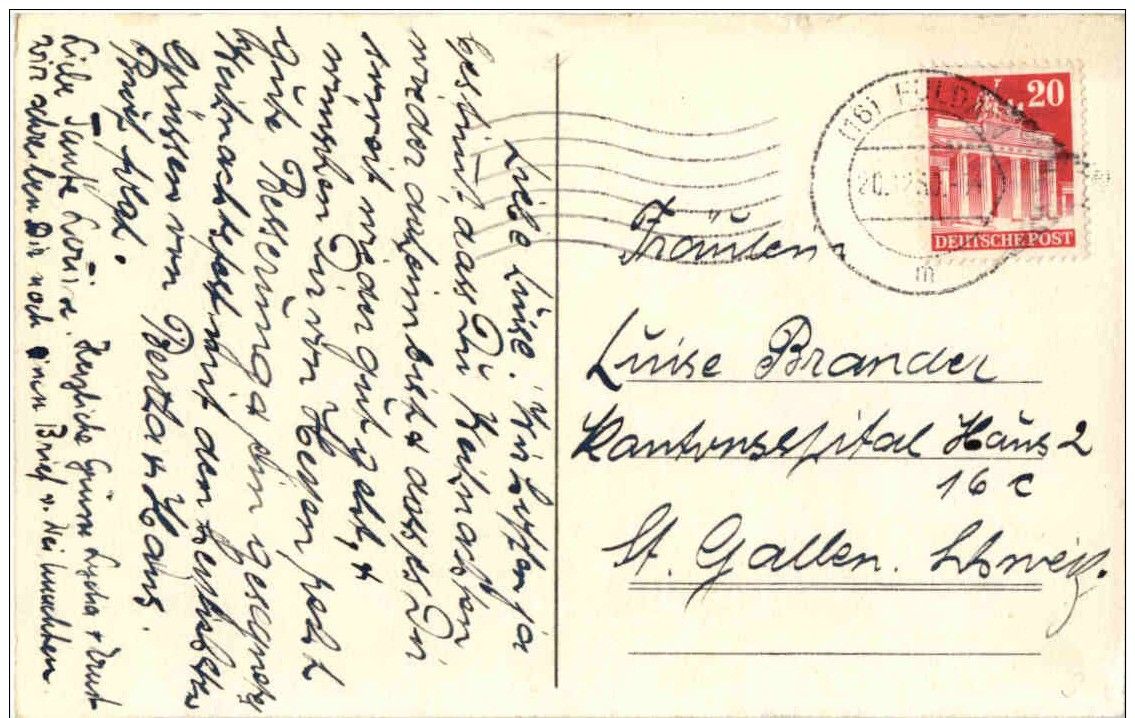 Liebe Luise. Wir hoffen ja
bestimmt dass Du Weihnachten
wieder daheim bist & dass es Dir
soweit wieder gut geht, &
wünschen Dir von Herzen recht
Gute Besserung & ein gesegnetes
Weihnachtsfest mit den herzlichsten
Grüssen von Berta & Hans.
Brief folgt.
Liebe Tante Louise. Herzliche Grüsse Lydia & Ernst
wir schreiben Dir noch einen Brief v. Weihnachten.
(16) FULDA
20.12.50
m
20
DEUTSCHE POST
Fräulein
Luise Brander
Kantonsspital Haus 2
16 c
St. Gallen. Schweiz.